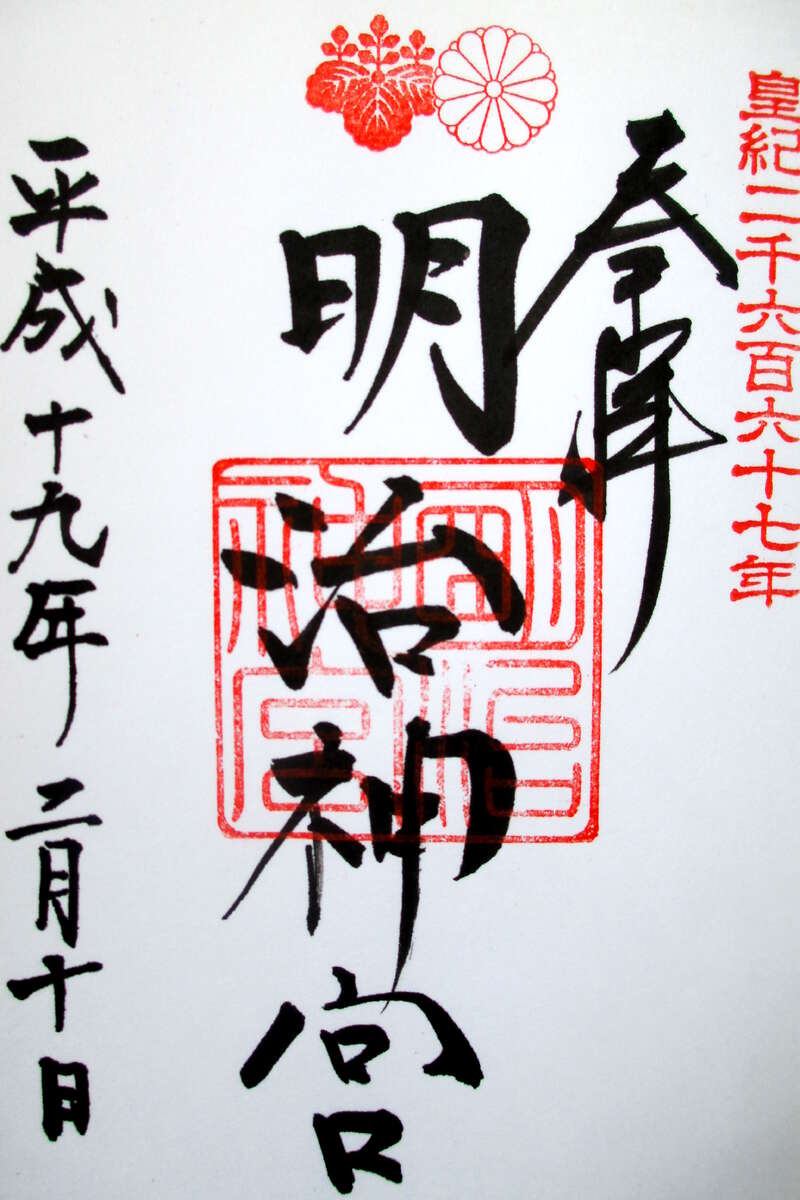 皇紀二千六百六十七年
奉拝
明治神宮
明治神宮
平成十九年二月十日